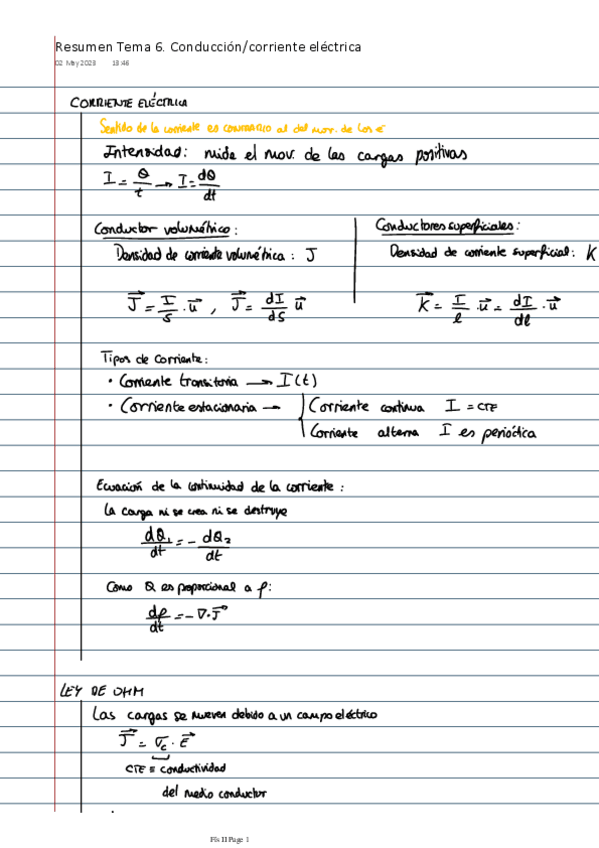 Resumen Tema 6. Conducción/corriente eléctrica
02 May 2023 18:46
CORRIENTE ELÉCTRICA
Sentido de la corriente es contrario al del mov. de los e⁻
Intensidad: mide el mov. de las cargas positivas
I = Q/t → I = dQ/dt
Conductor volumétrico:
Densidad de corriente volumétrica: J
J⃗ = I/S · u⃗ , J⃗ = dI/ds u⃗
Conductores superficiales:
Densidad de corriente superficial: K
K⃗ = I/l · u⃗ = dI/dl · u⃗
Tipos de corriente:
• Corriente transitoria → I(t)
• Corriente estacionaria → Corriente continua I = CTE
Corriente alterna I es periódica
Ecuación de la continuidad de la corriente:
la carga ni se crea ni se destruye
dQ₁/dt = - dQ₂/dt
Como Q es proporcional a ρ:
dρ/dt = - ∇·J⃗
LEY DE OHM
Las cargas se mueven debido a un campo eléctrico
J⃗ = σc · E⃗
CTE ≡ conductividad
del medio conductor
Fís II Page 1